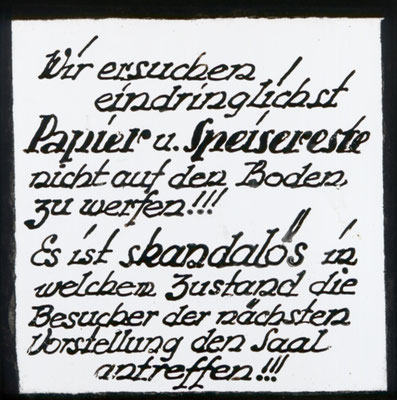 Wir ersuchen
eindringlichst
Papier u. Speisereste
nicht auf den Boden,
zu werfen!!!
Es ist skandalös in
welchem Zustand die
Besucher der nächsten
Vorstellung den Saal
antreffen!!!